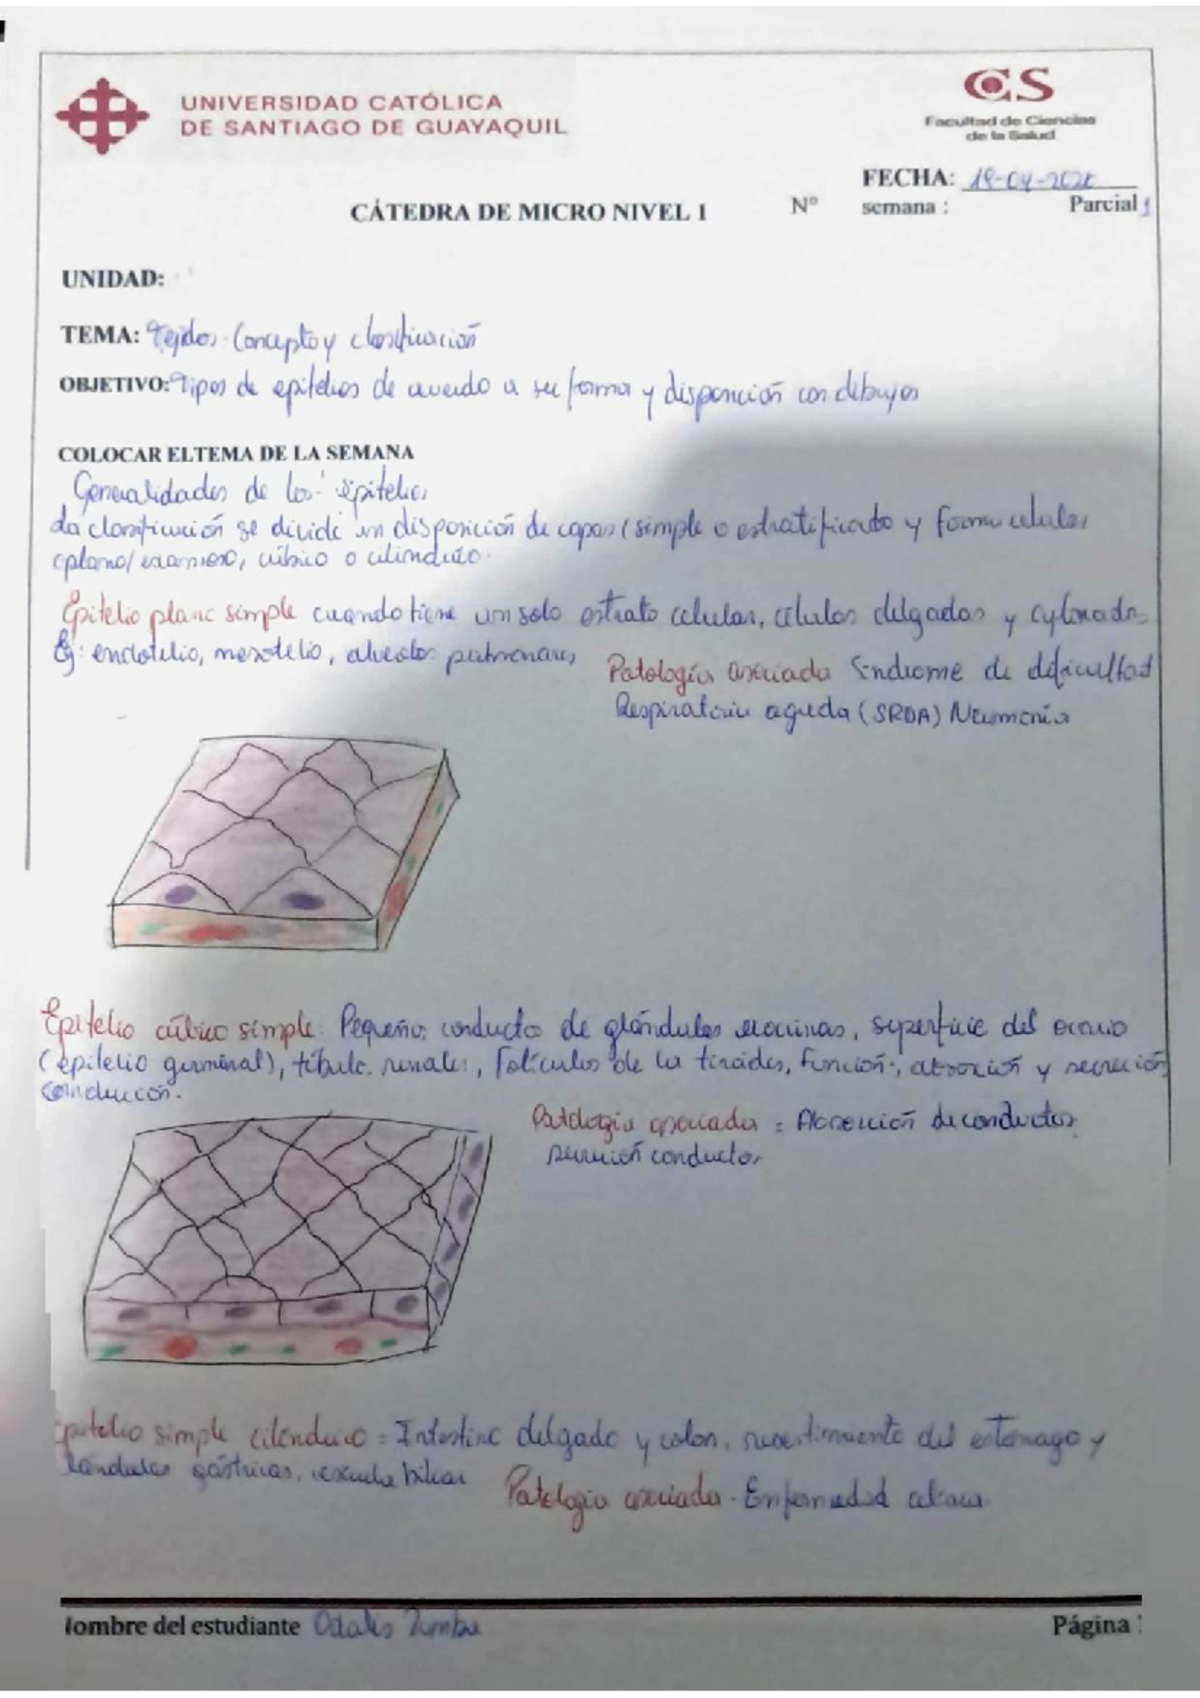 UNIVERSIDAD CATÓLICA
DE SANTIAGO DE GUAYAQUIL
CS
Facultad de Ciencias
de la Salud
FECHA:
CÁTEDRA DE MICRO NIVEL 1 Nº semana : Parcial 1
UNIDAD:
TEMA: Tejidos: Concepto y clasificación
OBJETIVO: Tipos de epitelios de acuerdo a su forma y disposición con dibujos
COLOCAR ELTEMA DE LA SEMANA
Generalidades de los epitelios
La clasificación se divide en disposición de capas (simple o estratificado y forma celular
(plano/escamoso, cúbico o cilindrico.
Epitelio plano simple cuando tiene un solo estrato celular, células delgadas y
Ej: endotelio, mesotelio, alveolos pulmonares
Patología asociada Sindrome de dificultad
Respiratoria aguda (SRDA) Neumonía
Epitelio cúbico simple: Pequeños conducto de glándulas exocrinas, superficie del ovario
(epitelio germinal), túbulo renales, folículos de la tiroides, función: absorción y secreción
conducción.
Patologia asociada : Absorción de conductos
conductos
Epitelio simple cilíndrico = Intestino delgado y colon, revestimiento del estomago y
lándulas gástricas, vesicula biliar
Patologia asociada. Enfermedad celiaca
Nombre del estudiante Odalis
Página